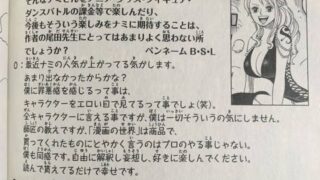 ダンスバトルの課金等で楽しんだり、
今後もそういう楽しみをナミに期待することは、
作者の尾田先生にとってはあまりよく思わない所
でしょうか？　ペンネームB・S・L
O：最近ナミの人気が上がってる気がします。
あまり出なかったからかな？
僕に罪悪感を感じてるってことは、
キャラクターをエロい目で見てるって事でしょ(笑)。
全キャラクターに言える事ですが、僕は一切そういうの気にしません。
師匠の教えですが、「漫画の世界」は商品で、
買ってくれたものにとやかく言うのはプロのやる事じゃない。
僕も同感です。自由に解釈し妄想し、好きに楽しんでください。
読んで貰えてるだけで幸せです。